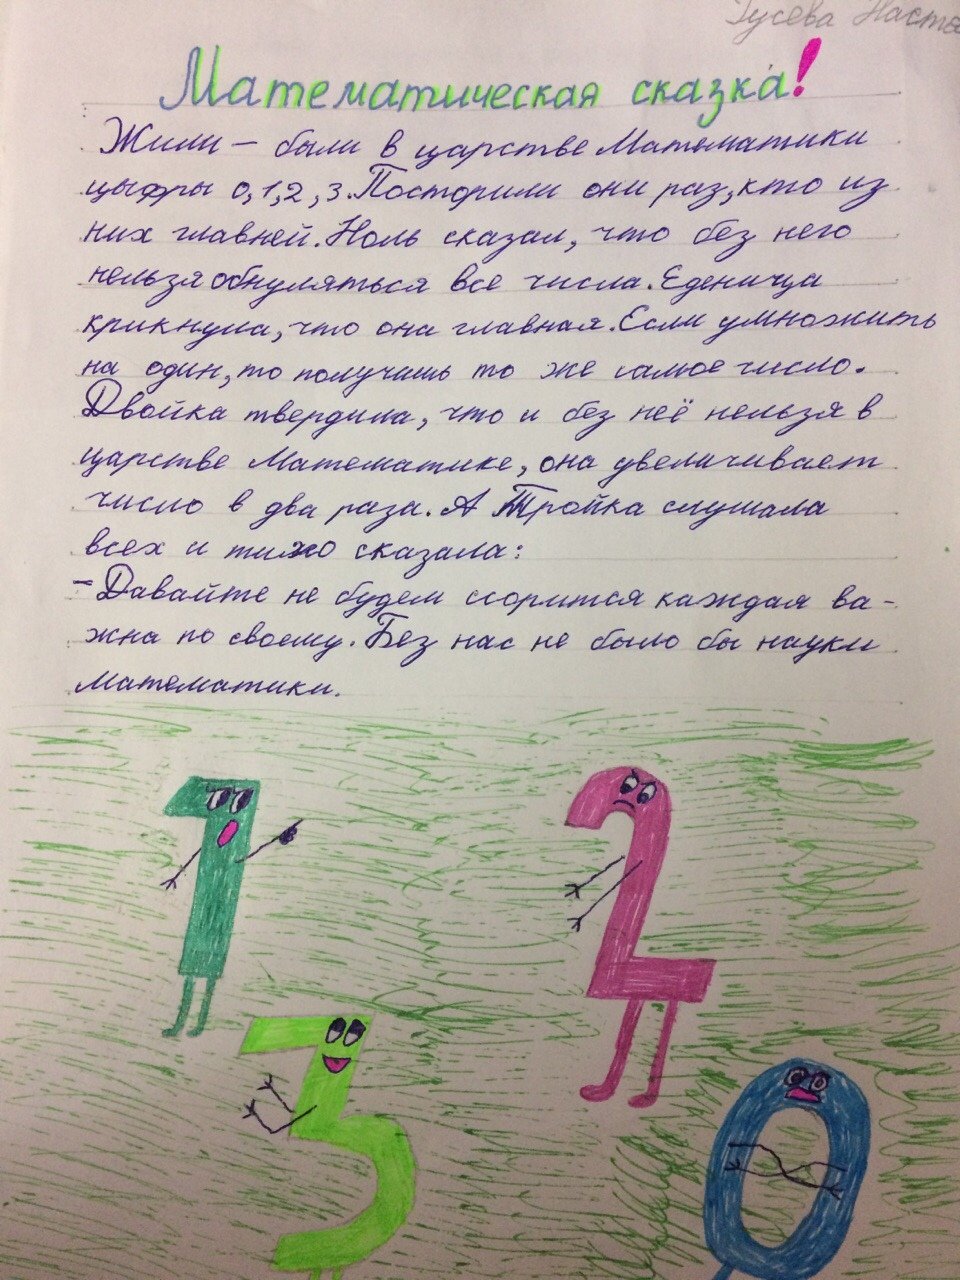 Гусева Настя
Математическая сказка!
Жили – были в царстве Математики
цыфры 0,1,2,3. Посторили они раз, кто из
них главней. Ноль сказал, что без него
нельзя обнуляться все числа. Еденица
крикнула, что она главная. Если умножить
на один, то получишь то же самое число.
Двойка твердила, что и без неё нельзя в
царстве Математике, она увеличивает
число в два раза. А Тройка слушала
всех и тихо сказала:
– Давайте не будем ссорится каждая ва-
жна по своему. Без нас не было бы науки
математики.